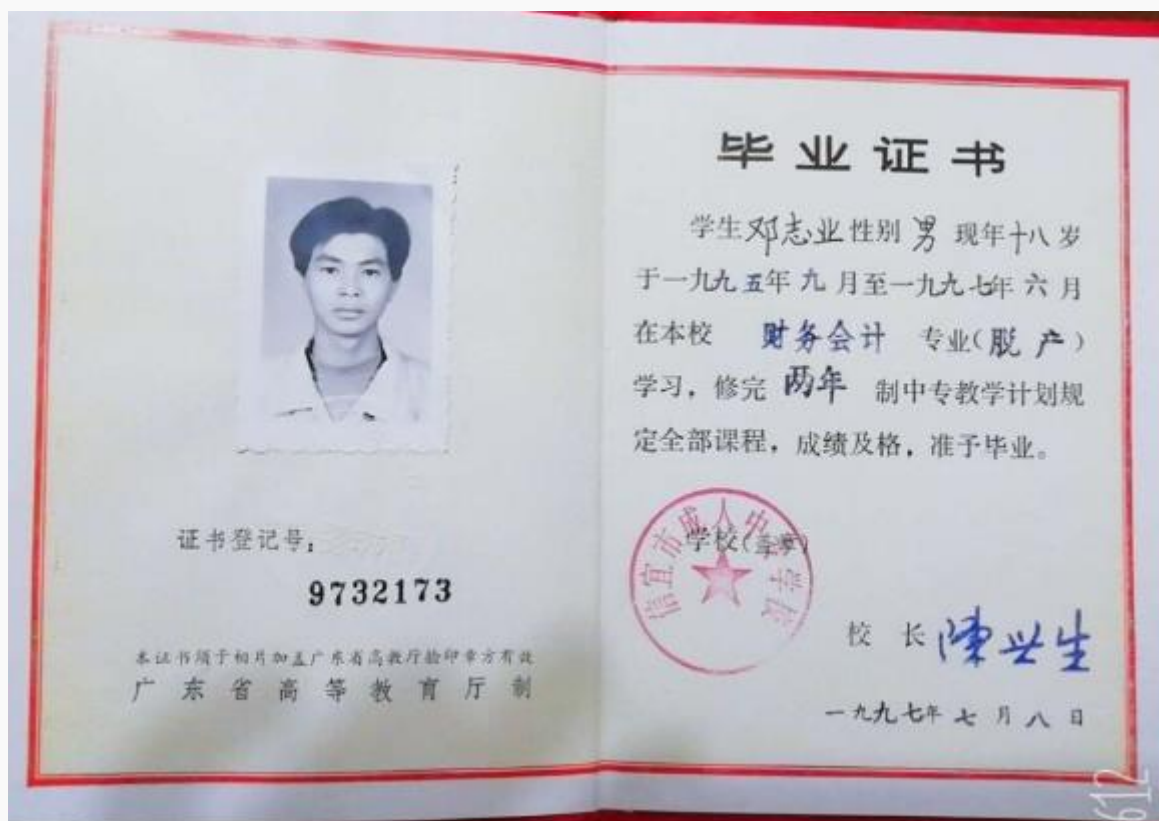 证书登记号：
9732173
本证书须于相片加盖广东省高教厅验印章方有效
广东省高等教育厅制
毕业证书
学生邓志业性别男现年十八岁
于一九九五年九月至一九九七年六月
在本校 财务会计 专业（脱产）
学习，修完 两年 制中专教学计划规
定全部课程，成绩及格，准予毕业。
学校（盖章）
信宜市成人中专学校
校长 陳兴生
一九九七年七月八日
612